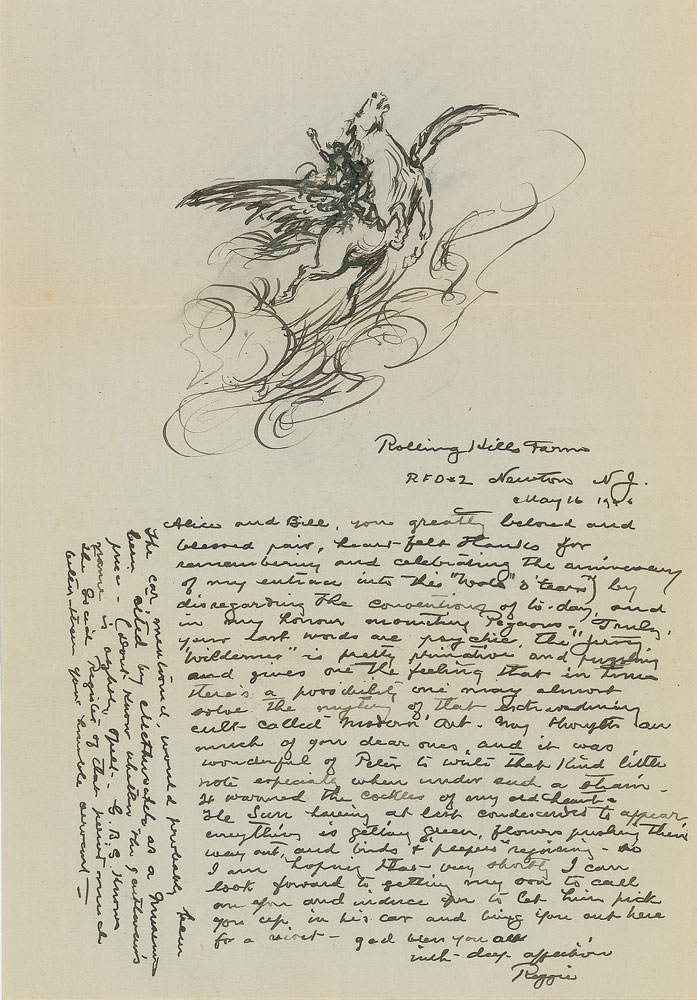 Rolling Hills Farms
RFD#2 Newton N.J.
May 16
Alice and Bill, you greatly beloved and
blessed pair, heart-felt thanks for
remembering and celebrating the anniversary
of my entrance into this "Wale o' tears") by
disregarding the conventions of to-day, and
in my honour mounting Pegasus - Truly,
your last words are psychic, the "
"Wilderness" is pretty primitive and puzzling
and gives one the feeling that in time
there's a possibility one may almost
solve the mystery of that
cult called Modern Art - My thoughts are
much of you dear ones, and it was
wonderful of Peter to write that kind little
note especially when under such a strain -
It warmed the cockles of my old heart -
The Sun having at last condescended to appear,
everything is getting green, flowers pushing their
way out, and birds & "peepers" rejoicing - so
I am hoping that very shortly I can
look forward to getting my son to call
on you and induce you to let him pick
you up in his car and bring you out here
for a visit - God bless you all
with deep affection
Reggie
The car, mentioned, would probably have
been acted by as a Museum
piece - (don't know whether the
name is rightly spelt - G.B.S. knows
the Social Register of that period much
better than your humble servant -